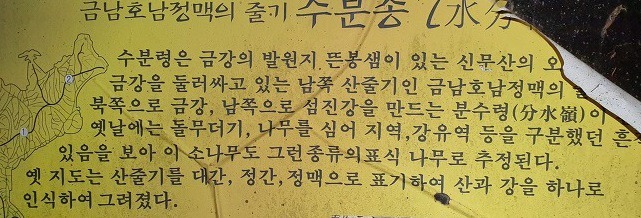 금남호남정맥의 줄기 수분송(水分
수분령은 금강의 발원지 뜬봉샘이 있는 신무산의 오
금강을 둘러싸고 있는 남쪽 산줄기인 금남호남정맥의
북쪽으로 금강, 남쪽으로 섬진강을 만드는 분수령(分水嶺)이
옛날에는 돌무더기, 나무를 심어 지역,강유역 등을 구분했던 흔
있음을 보아 이 소나무도 그런종류의표식 나무로 추정된다.
옛 지도는 산줄기를 대간, 정간, 정맥으로 표기하여 산과 강을 하나로
인식하여 그려졌다.